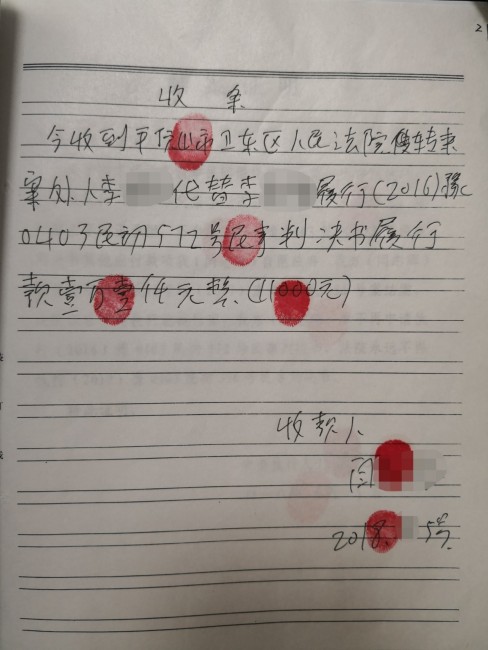 收 条
今收到平顶山市卫东区人民法院转来
案外人李 代替李 履行(2016)豫
0403民初572号民事判决书履行
款壹万壹仟元整.(11000元)
收款人
闫
2018. 5号
2